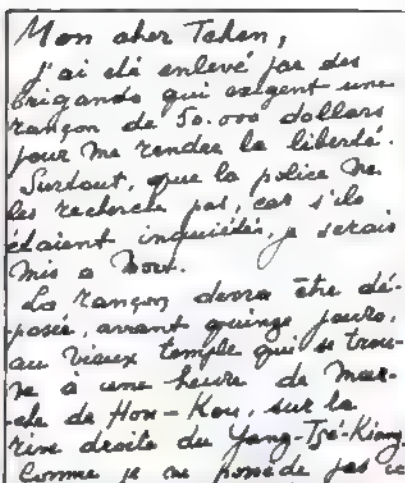 Mon cher Tchen,
J'ai été enlevé par des
brigands qui exigent une
rançon de 50.000 dollars
pour me rendre la liberté.
Surtout, que la police ne
les recherche pas, car s'ils
étaient inquiétés, je serais
mis à mort.
La rançon devra être dé-
posée, avant quinze jours,
au vieux temple qui se trou-
ve à une heure de mar-
che de Hou-Kou, sur la
rive droite du Yang-Tsé-Kiang.
Comme je ne possède pas ici